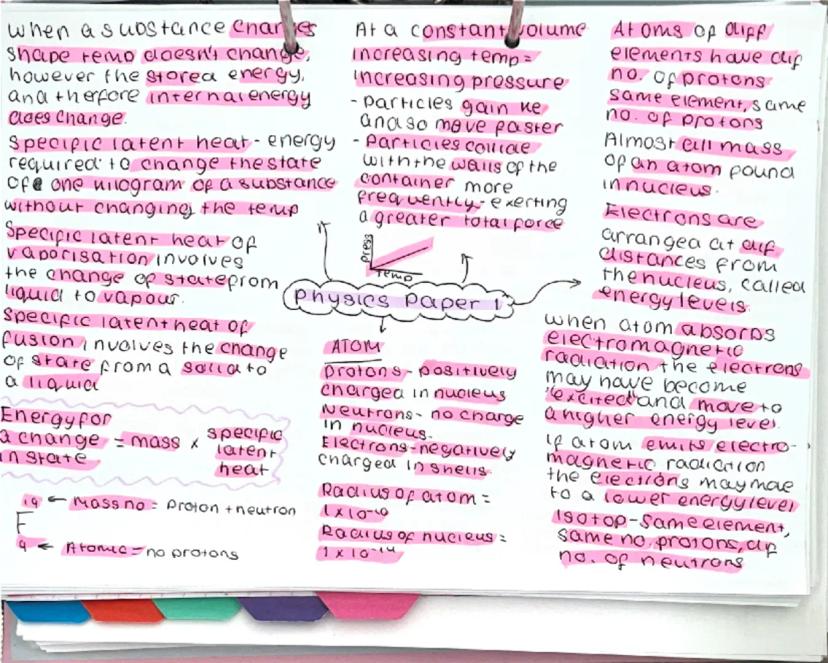 When a substance changes
shape temp doesn't change,
however the stored energy,
and therfore internal energy
does change.
Specific latent heat - energy
required to change the state
of one kilogram of a substance
without changing the temp
Specific latent heat of
vaporisation involves
the change of state from
liquid to vapour.
Specific latent heat of
fusion involves the change
of state from a solid to
a liquid
Energy for
a change = mass x specific
in state latent
heat
19 ← Mass no = Proton + neutron
F
9 ← Atomic = no protons
At a constant volume
increasing temp =
increasing pressure
- Particles gain KE
and so move faster
- Particles collide
with the walls of the
container more
frequently - exerting
a greater total force
press
Temp
Physics Paper 1
ATOM
Protons - positively
charged in nucleus
Neutrons - no charge
in nucleus.
Electrons - negatively
charged in shells.
Radius of atom =
1 x 10-10
Radius of nucleus =
1 x 10-14
Atoms of diff
elements have dif
no. of protons
same element, same
no. of protons
Almost all mass
of an atom found
in nucleus.
Electrons are
arranged at dif
distances from
the nucleus, called
energy levels.
When atom absorbs
electromagnetic
radiation the electrons
may have become
"excited" and move to
a higher energy level
If atom emits electro-
magnetic radiation
the electrons may move
to a lower energy level
Isotop - Same element,
same no. protons, dif
no. of neutrons